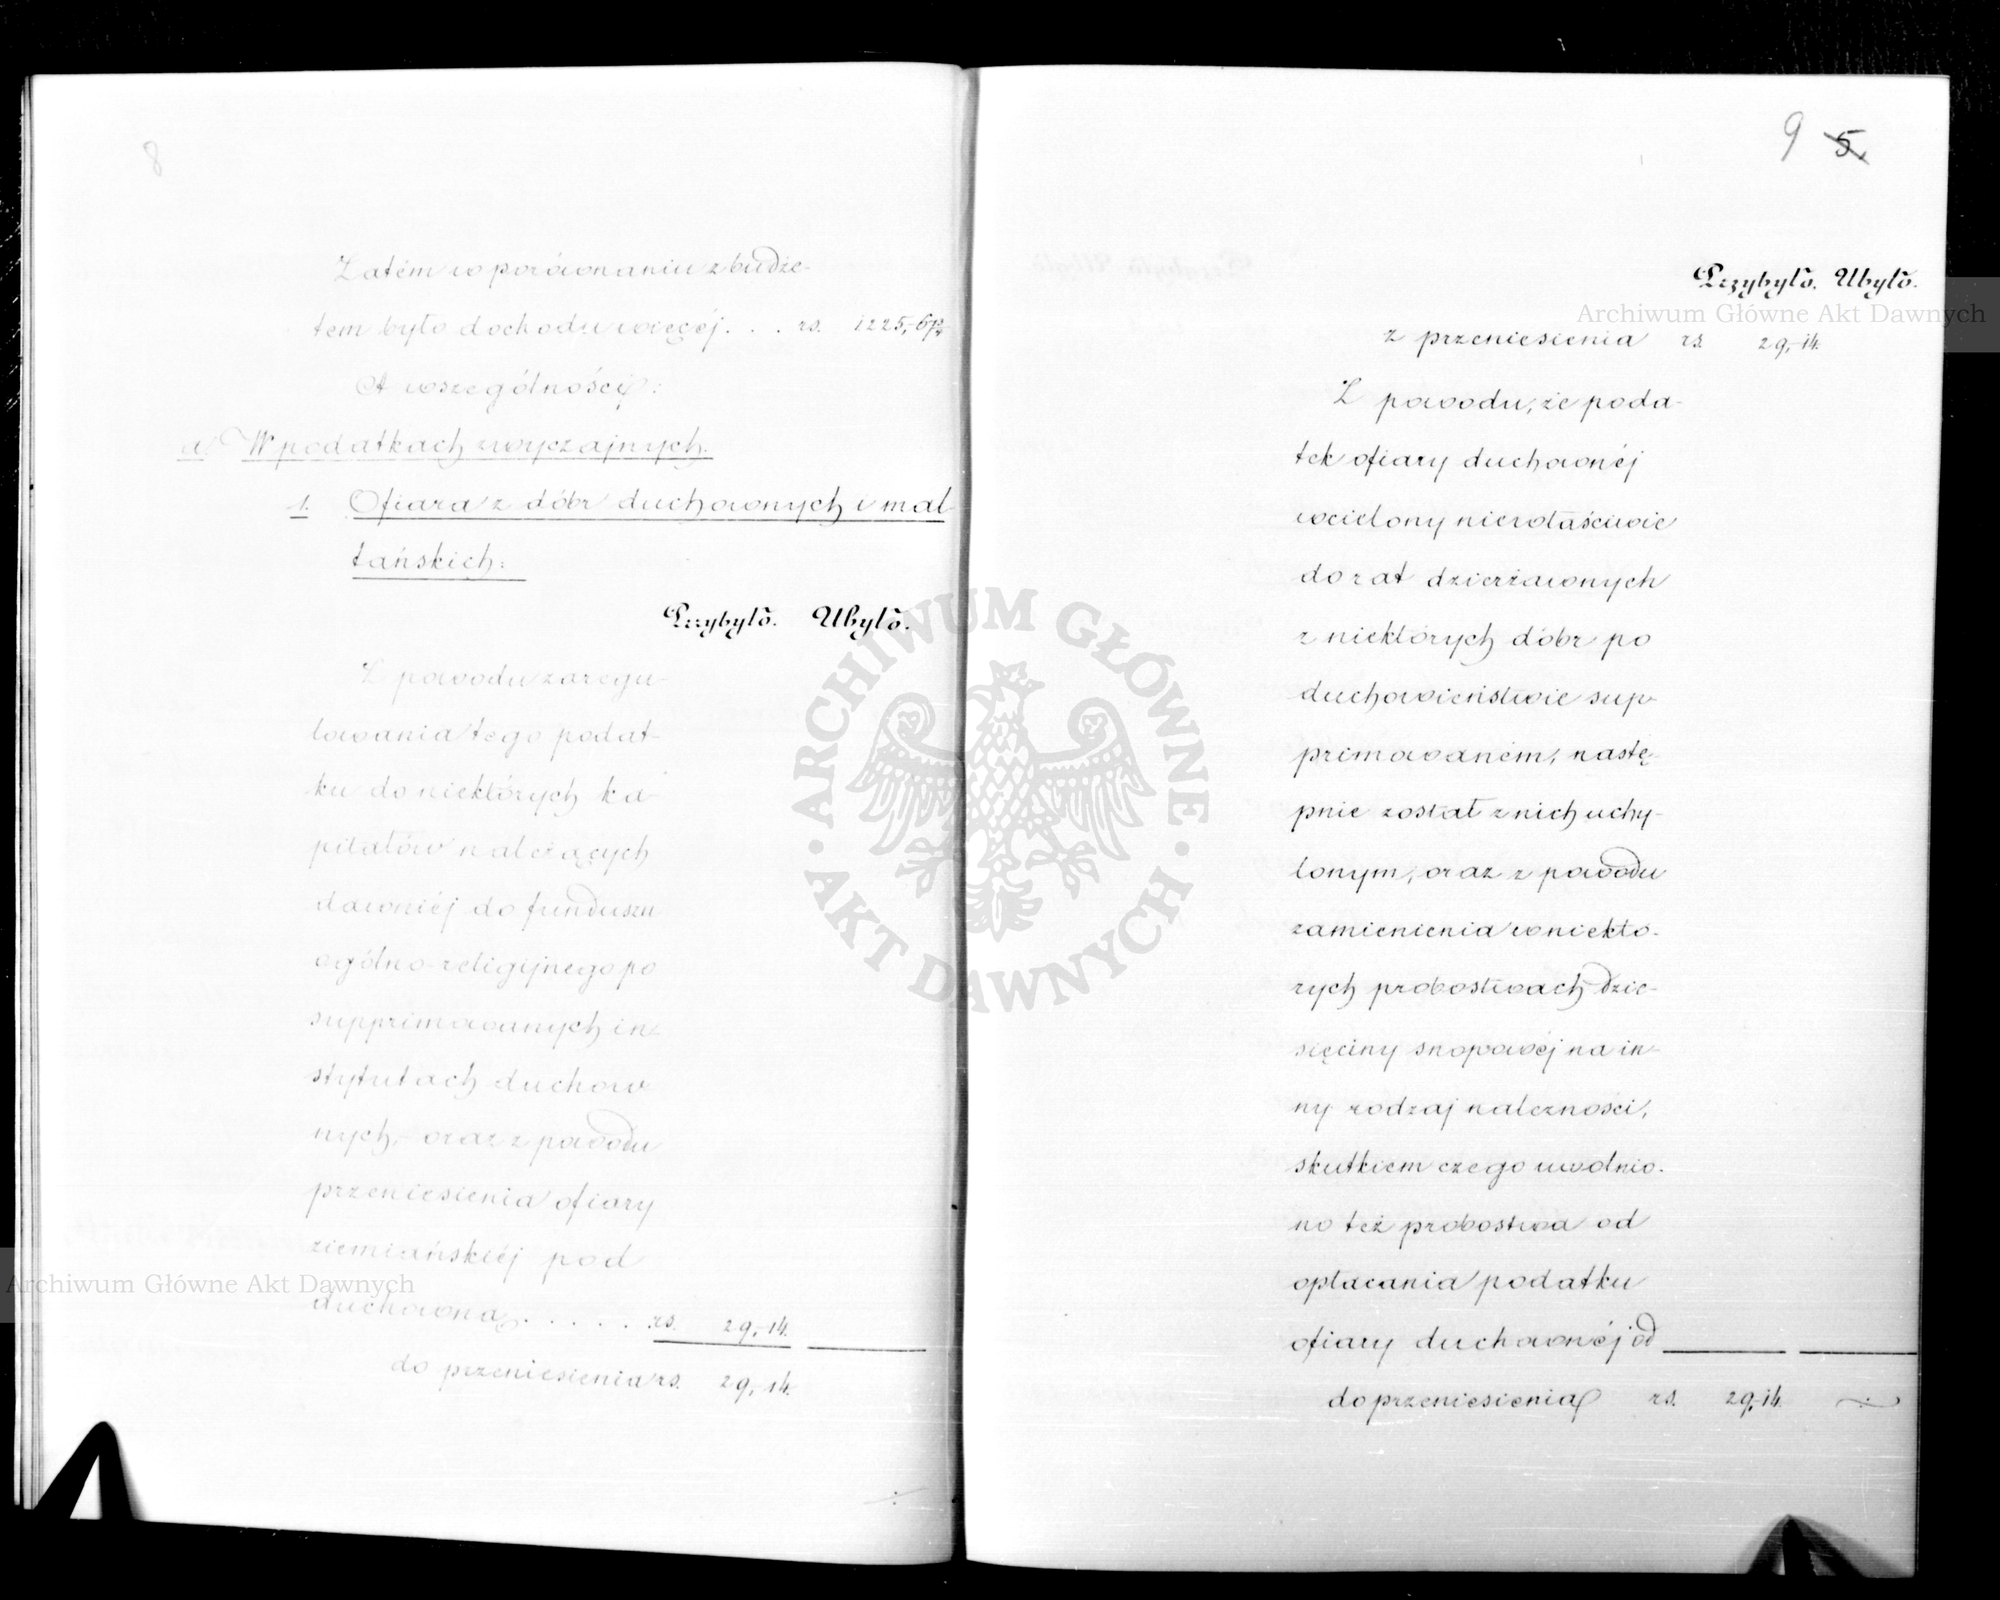 8
Zatém w porównaniu z budże-
tem było dochodu więcéj . . . rs. 1225,-
A wszczególności:
a/ W podatkach zwyczajnych.
1. Ofiara z dóbr duchownych i mal
tańskich:
Przybyło. Ubyło.
Z powodu zaregu-
lowania tego podat-
ku do niektórych ka-
pitałów należących
dawniéj do funduszu
ogólno-religijnego po
supprimowanych in-
stytutach duchow
nych, oraz z powodu
przeniesienia ofiary
ziemiańskiéj pod
duchowną . . . . . rs. 29,-14.
do przeniesienia rs. 29,-14.
9 5.
Przybyło. Ubyło.
z przeniesienia rs. 29,-14.
Z powodu, że poda-
tek ofiary duchownéj
wcielony niewłaściwie
do rat dzierżawnych
z niektórych dóbr po
duchowieństwie sup-
primowaném, nastę-
pnie został z nich uchy-
lonym, oraz z powodu
zamienienia w niektó-
rych probostwach dzie-
sięciny snopowéj na in-
ny rodzaj należności,
skutkiem czego uwolnio-
no też probostwa od
opłacania podatku
ofiary duchownéj od
do przeniesienia rs. 29,-14.
Archiwum Główne Akt Dawnych
ARCHIWUM GŁÓWNE
AKT DAWNYCH
Archiwum Główne Akt Dawnych